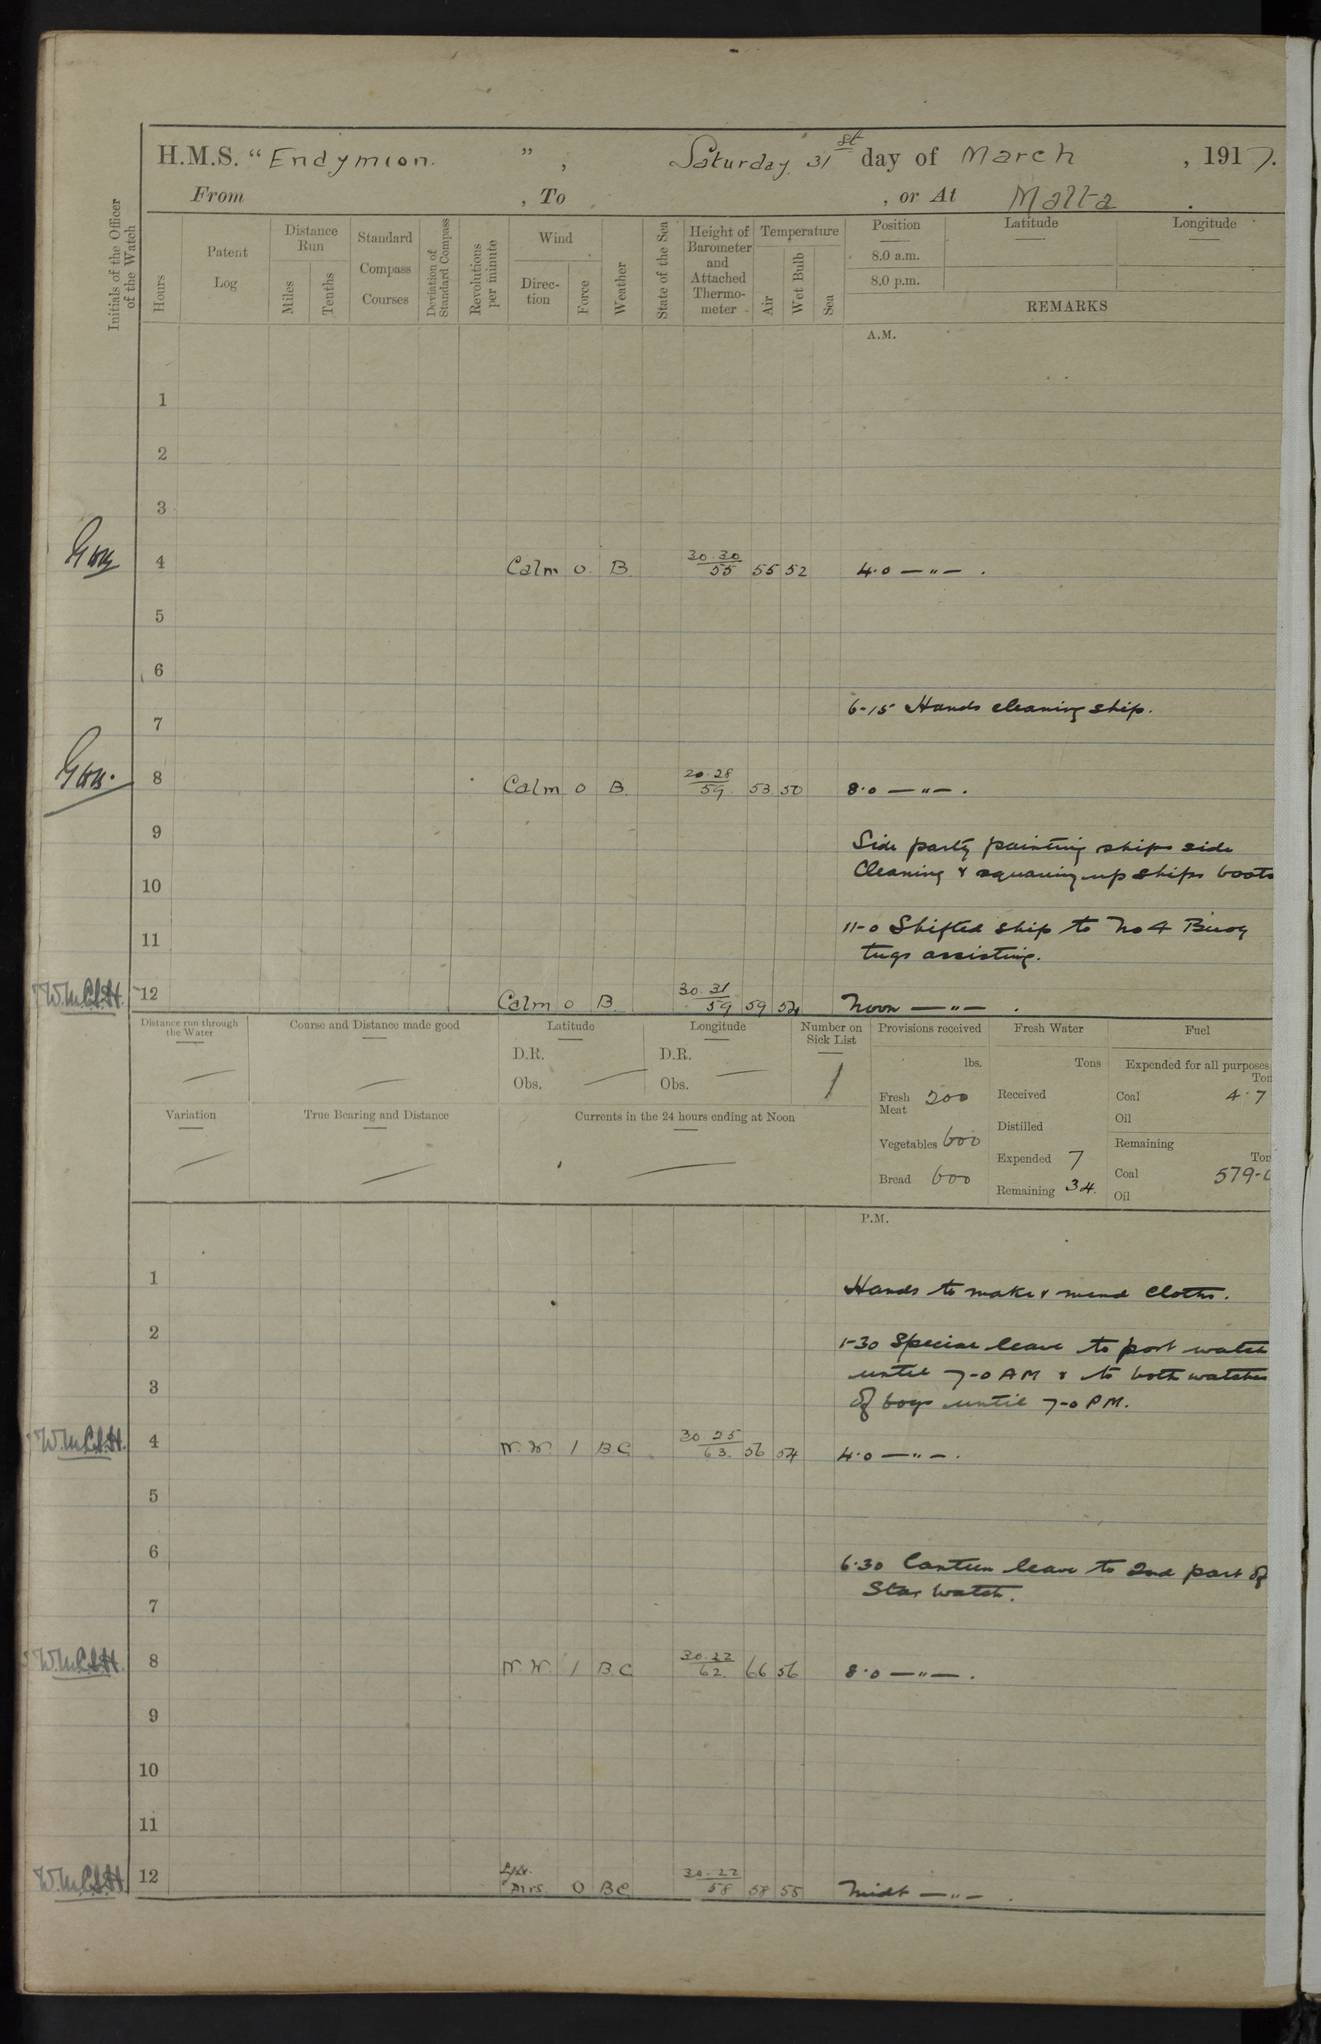 H.M.S. "Endymion. ", Saturday 31st day of March, 1917.
From , To , or At Malta.
Initials of the Officer of the Watch
Hours
Patent Log
Distance Run
Miles
Tenths
Standard Compass Courses
Deviation of Standard Compass
Revolutions per minute
Wind
Direction
Force
Weather
State of the Sea
Height of Barometer and Attached Thermometer
Temperature
Air
Wet Bulb
Sea
Position Latitude Longitude
8.0 a.m.
8.0 p.m.
REMARKS
A.M.
1
2
3
4 Calm 0 B 30.30/55 55 52 4.0 — " — .
5
6
6-15 Hands cleaning ship.
7
8 Calm 0 B. 20.28/59 53 50 8.0 — " — .
9
Side party painting ships side
Cleaning & squaring up ships boats
10
11-0 Shifted ship to No 4 Buoy
11
tugs assisting.
W.McC.S.H. 12 Calm 0 B. 30.31/59 59 54 Noon — " — .
Distance run through the Water
Course and Distance made good
Latitude
D.R.
Obs.
Longitude
D.R.
Obs.
Number on Sick List
1
Provisions received
lbs.
Fresh Meat 200
Vegetables 600
Bread 600
Fresh Water
Tons
Received
Distilled
Expended 7
Remaining 34.
Fuel
Expended for all purposes
Coal 4.7
Oil
Remaining
Coal 579-
Oil
Variation
True Bearing and Distance
Currents in the 24 hours ending at Noon
P.M.
1
Hands to make & mend cloths.
2
1-30 Special leave to port watch
until 7-0 AM & to both watches
3
of boys until 7-0 PM.
4 N.W. 1 BC 30.25/63. 56 54 4.0 — " — .
5
6
6.30 Canteen leave to 2nd part of
Star watch.
7
8 N.W. 1 B.C. 30.22/62. 66 56 8.0 — " — .
9
10
11
12 Lght. Airs. 0 BC 30.22/58 58 55 Midt — " — .